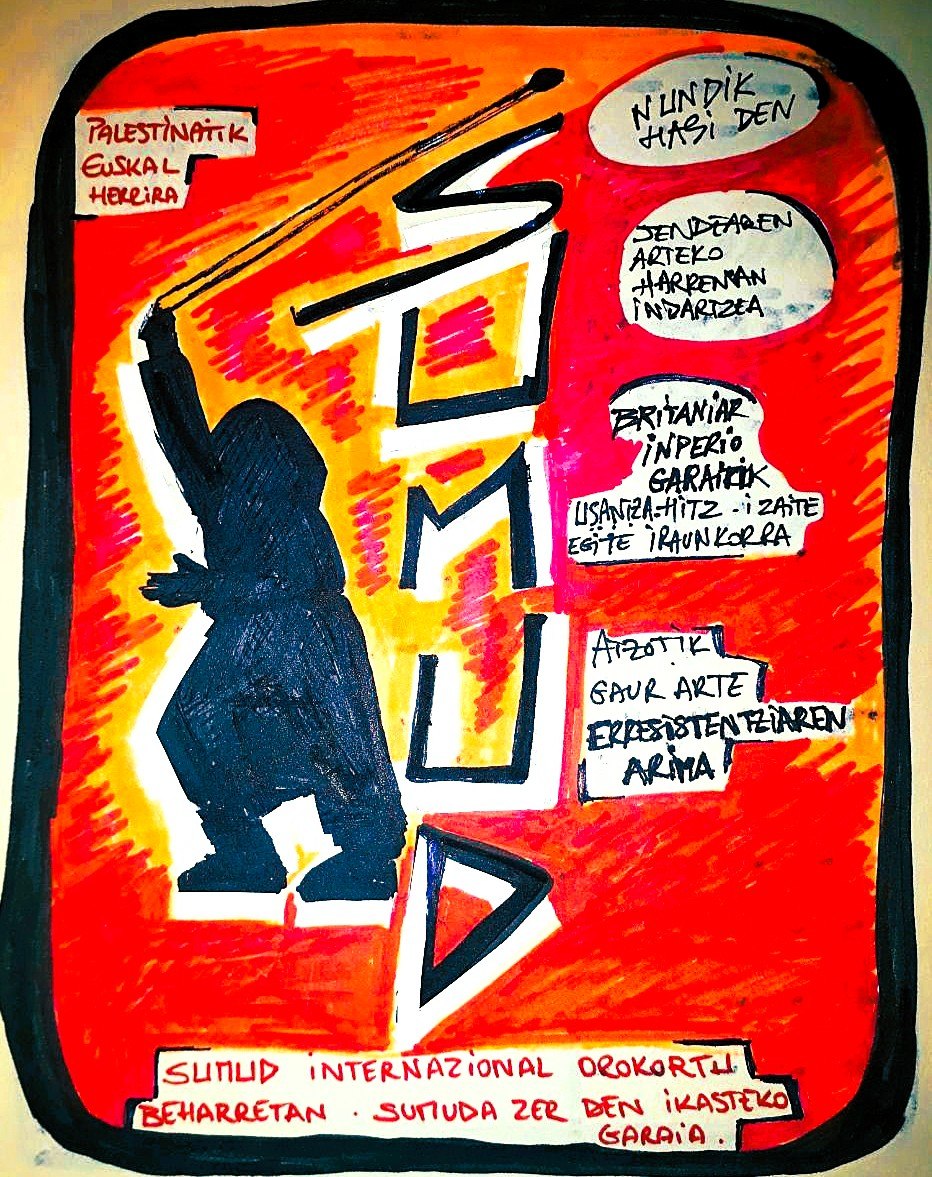 PALESTINATIK
EUSKAL
HERRIRA
SUMUD
NUNDIK
HASI DEN
JENDEAREN
ARTEKO
HARREMAN
INDARTZEA
BRITANIAR
INPERIO
GARAITIK
USANTZA-HITZ-IZAITE
EGITE IRAUNKORRA
ATZOTIK
GAUR ARTE
ERRESISTENTZIAREN
ARIMA
SUMUD INTERNAZIONAL OROKORTU
BEHARRETAN . SUMUDA ZER DEN IKASTEKO
GARAIA.